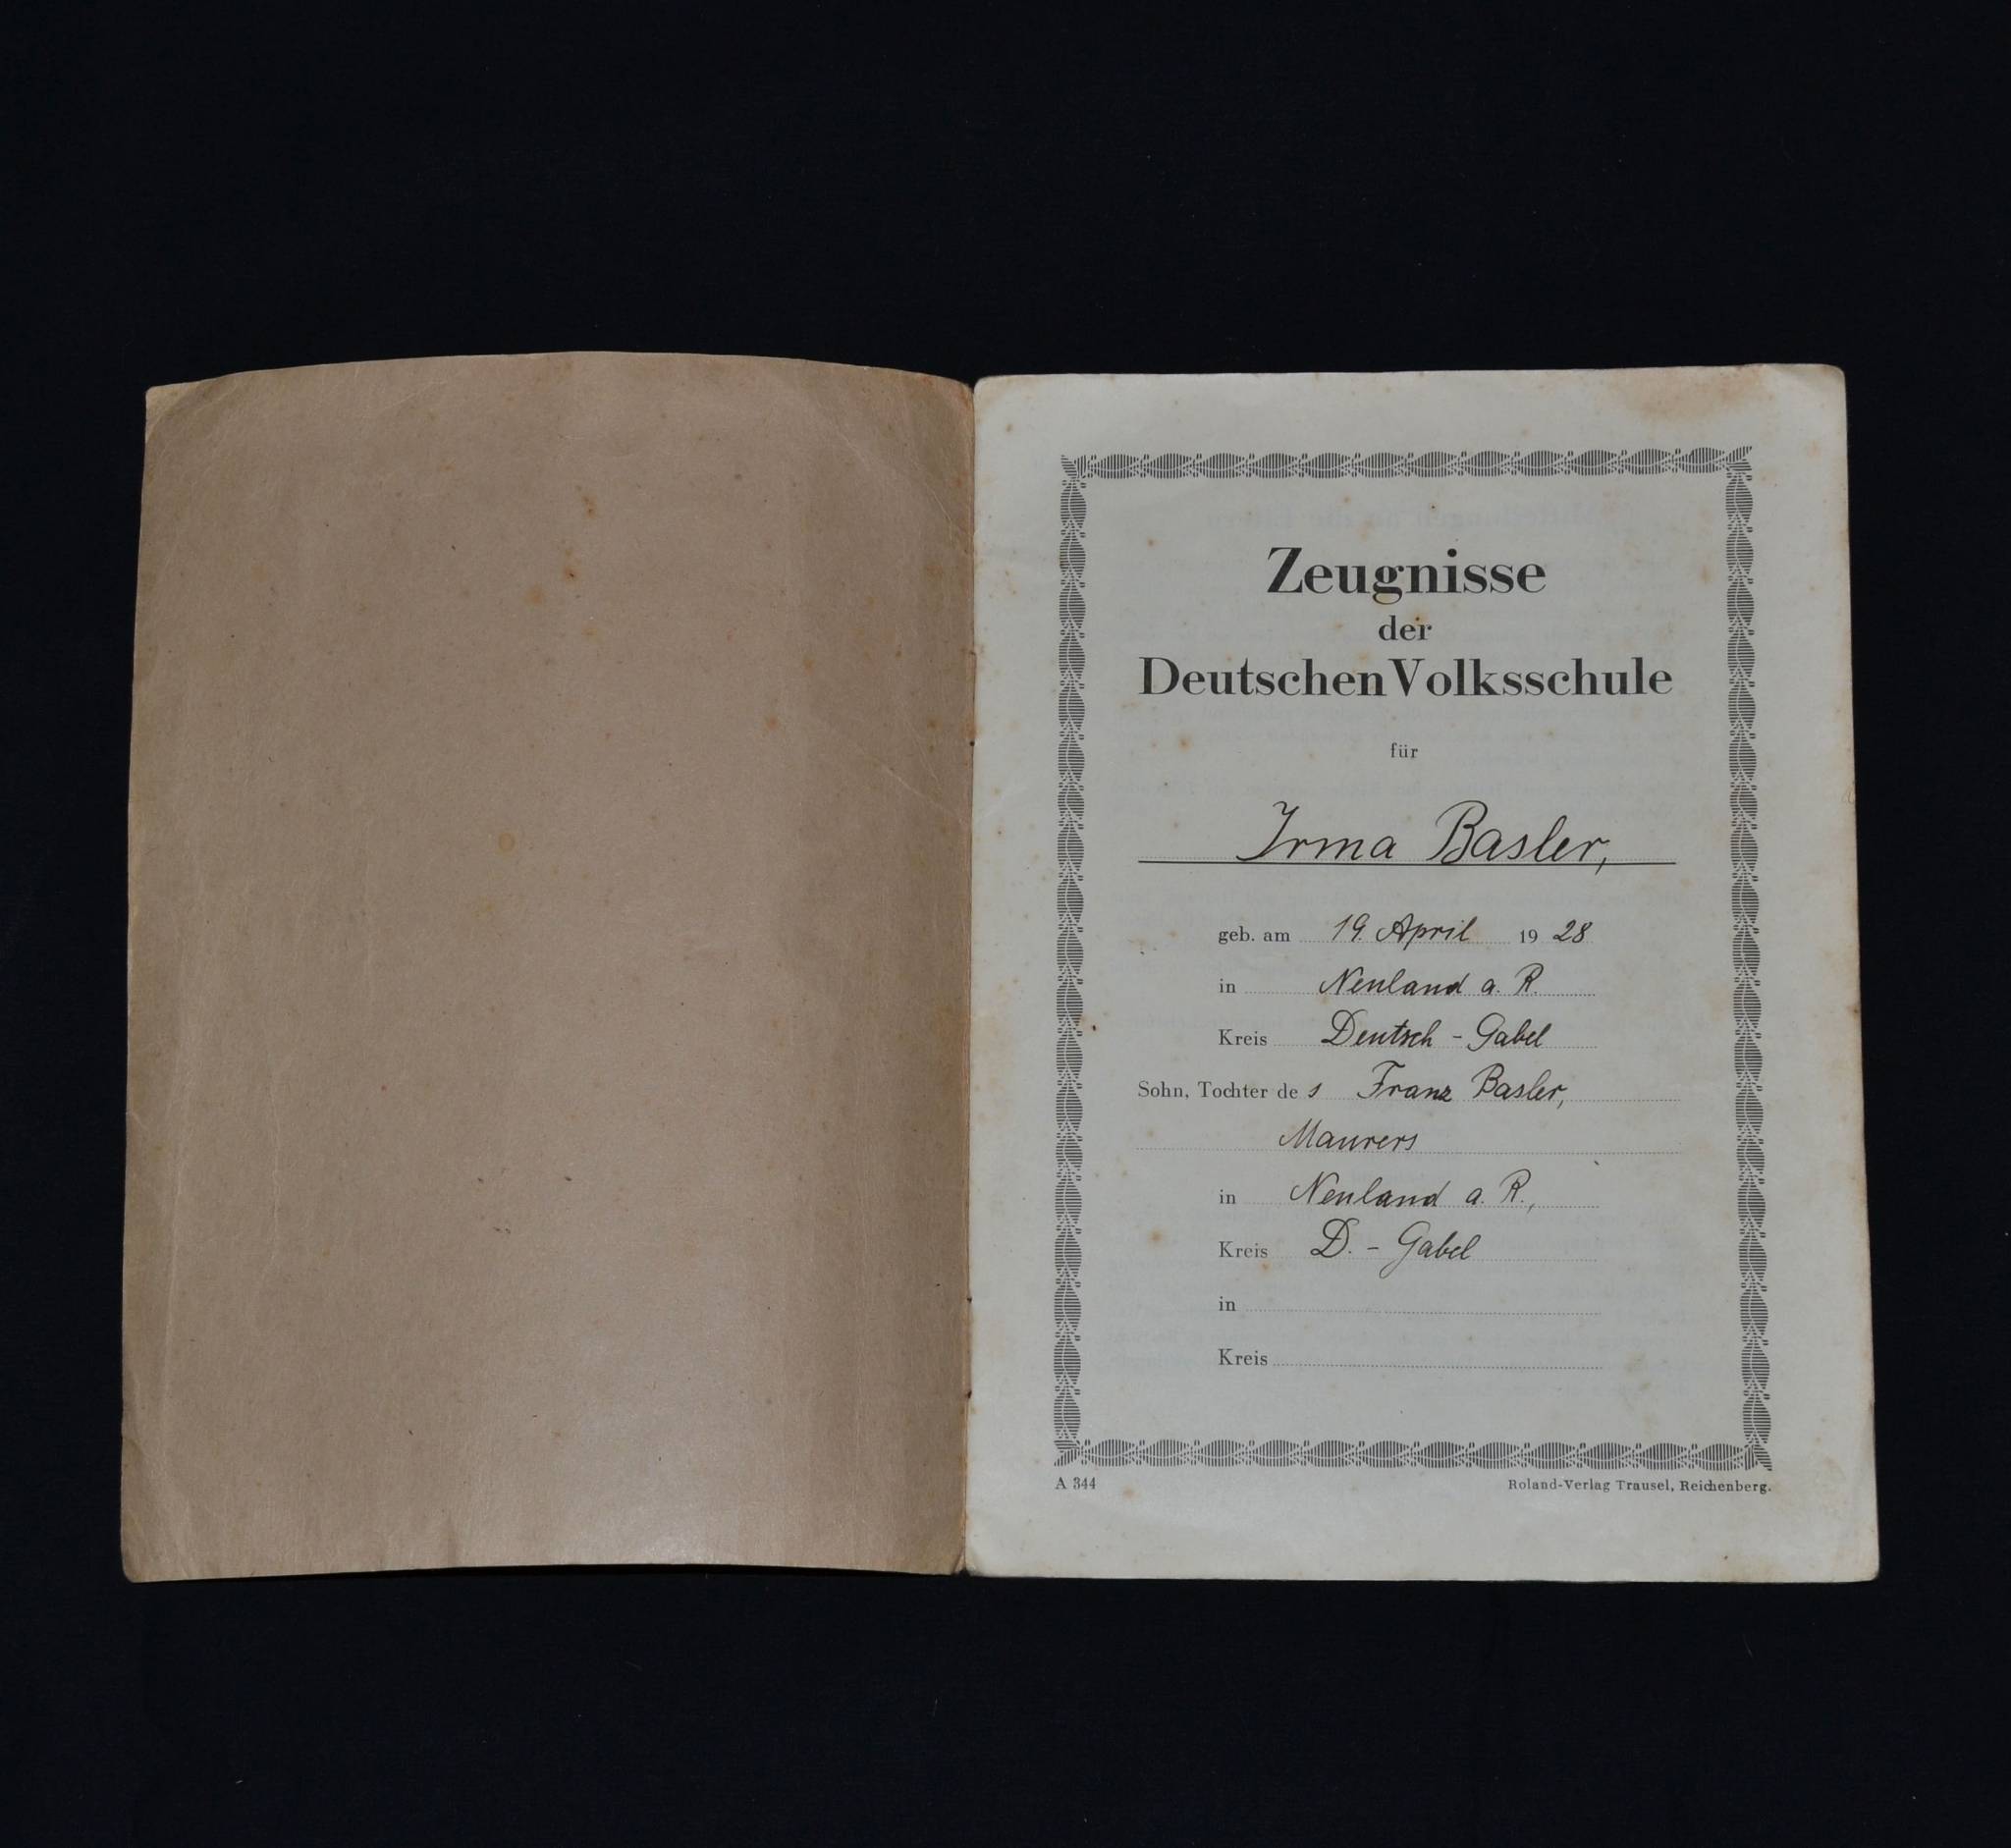 Zeugnisse
der
Deutschen Volksschule
für
Irma Basler,
geb. am 19. April 1928
in Neuland a. R.
Kreis Deutsch - Gabel
Sohn, Tochter des Franz Basler,
Maurers
in Neuland a. R.,
Kreis D. - Gabel
in
Kreis
A 344 Roland-Verlag Trausel, Reichenberg.